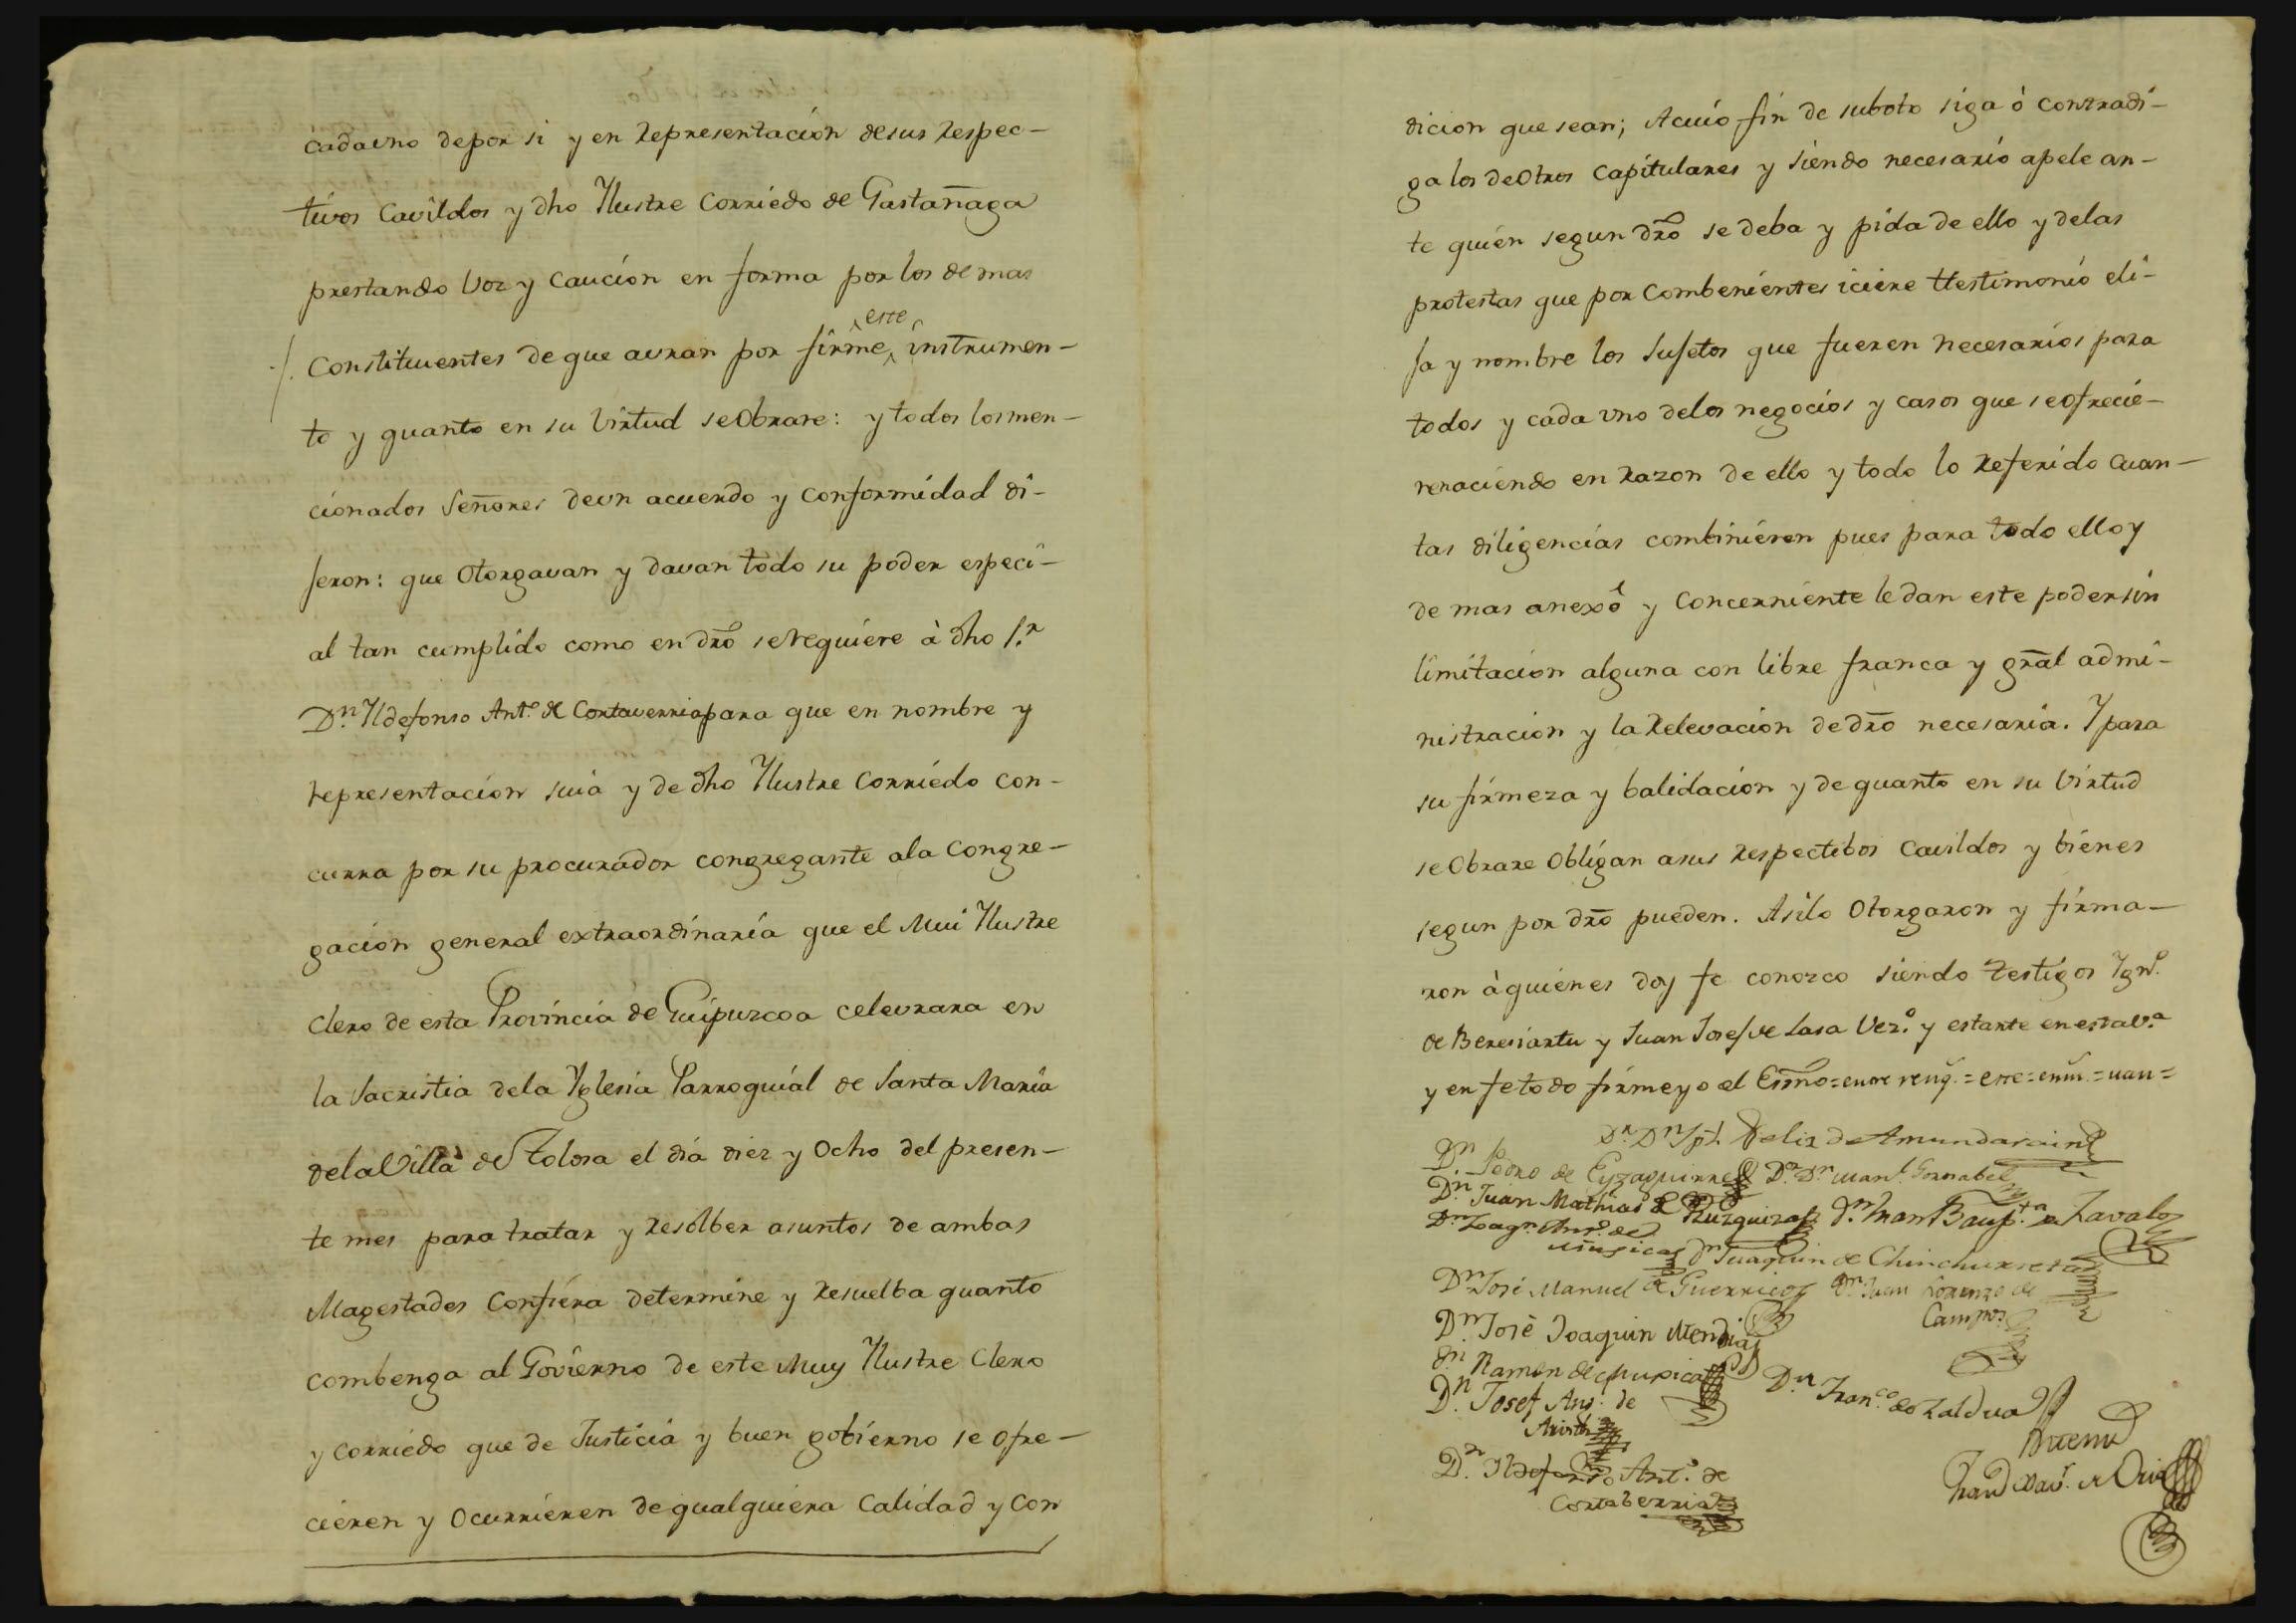 cadauno depor si y en representacion desus respec-
tivos Cavildos y dho Ylustre Corriedo de Gastañaga
prestando voz y Caución en forma por los demas
este
Constituentes de que avran por firme, instrumen-
to y quanto en su virtud seobrare: y todos losmen-
cionados Señores deun acuerdo y conformidad di-
jeron: que Otorgavan y davan todo su poder especi-
al tan cumplido como en dro serequiere à dho S.r
D.n Yldefonso Ant.o de Cortaverria para que en nombre y
representacion suia y de dho Ylustre Corriedo con-
curra por su procurador congregante ala Congre-
gacion general extraordinaria que el Mui Ylustre
Clero de esta Provincia de Guipuzcoa celevrara en
la Sacristia dela Yglesia Parroquial de Santa Maria
dela Villa de Tolosa el dia diez y Ocho del presen-
te mes para tratar y resolber asuntos de ambas
Magestades Confiera determine y resuelba quanto
combenga al Govierno de este Muy Ylustre Clero
y corriedo que de Justicia y buen gobierno se ofre-
cieren y Ocurrieren de qualquiera Calidad y Con
dicion que sean; Acuio fin de suboto siga ò contradi-
ga los deotros Capitulares y siendo necesario apele an-
te quien segun dro se deba y pida de ello y delas
protestas que por Combenientes iciere ttestimonio eli-
ja y nombre los Sujetos que fueren necesarios para
todos y cada uno delos negocios y casos que seofrecie-
renaciendo en razon de ello y todo lo referido cuan-
tas diligencias combinieren pues para todo ello y
de mas anexo y Concerniente le dan este poder sin
limitacion alguna con libre franca y gral admi-
nistracion y la relevacion de dro necesaria. Y para
su firmeza y balidacion y de quanto en su virtud
se Obrare Obligan asus respectibos Cavildos y bienes
segun por dro pueden. Asilo Otorgaron y firma-
ron àquienes doy fe conozco siendo testigos Ygn.o
de Beresiartu y Juan Josef de Lasa Vez.o y estante en esta V.a
y en fe todo firme yo el Essno = entre reng. = este = enm. = uan =
D.r D.n Jph. Feliz de Amundarain
D.n Pedro de Eyzaguirre D.r D.n Man.l Gorrabel
D.n Juan Mathias de Muzquiza D.n Juan Baup.ta de Zavala
D.n Joaq.n Ant.o de
Mugica D.n Juaquin de Chinchurreta
D.n José Manuel de Guerrico D.n Juan Lorenzo de
Campos
D.n José Joaquin Mendia
D.n Ramon de Mugica
D.n Josef Ant. de D.n Fran.co de Zaldua
D.n Yldefonso Ant.o de
Cortaberria